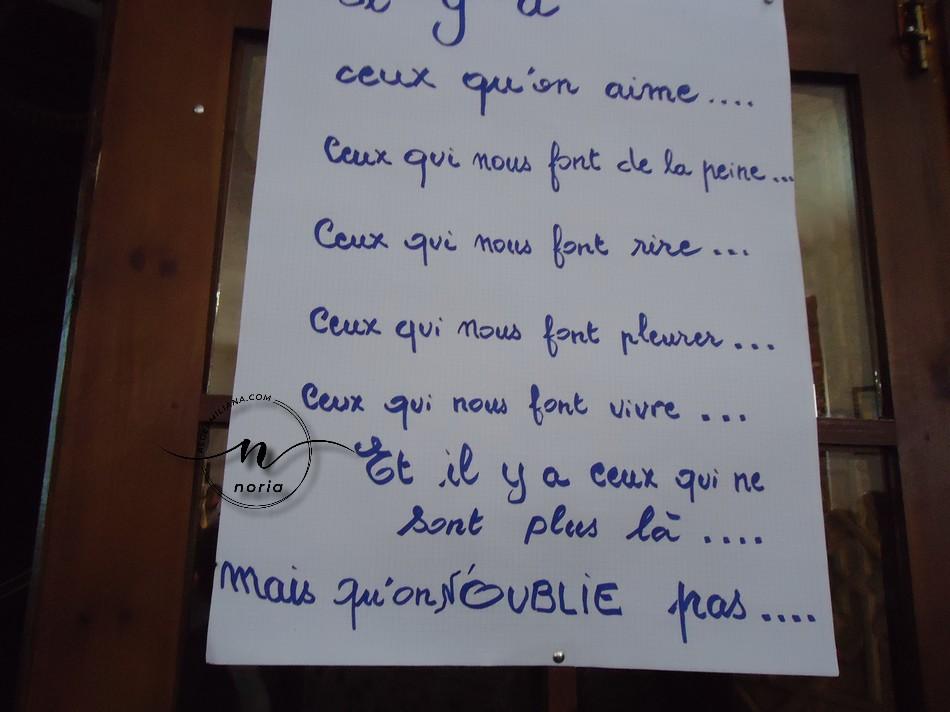 Il y a
ceux qu'on aime....
Ceux qui nous font de la peine...
Ceux qui nous font rire...
Ceux qui nous font pleurer...
Ceux qui nous font vivre...
Et il y a ceux qui ne
sont plus là....
Mais qu'on N'OUBLIE pas....
n
noria